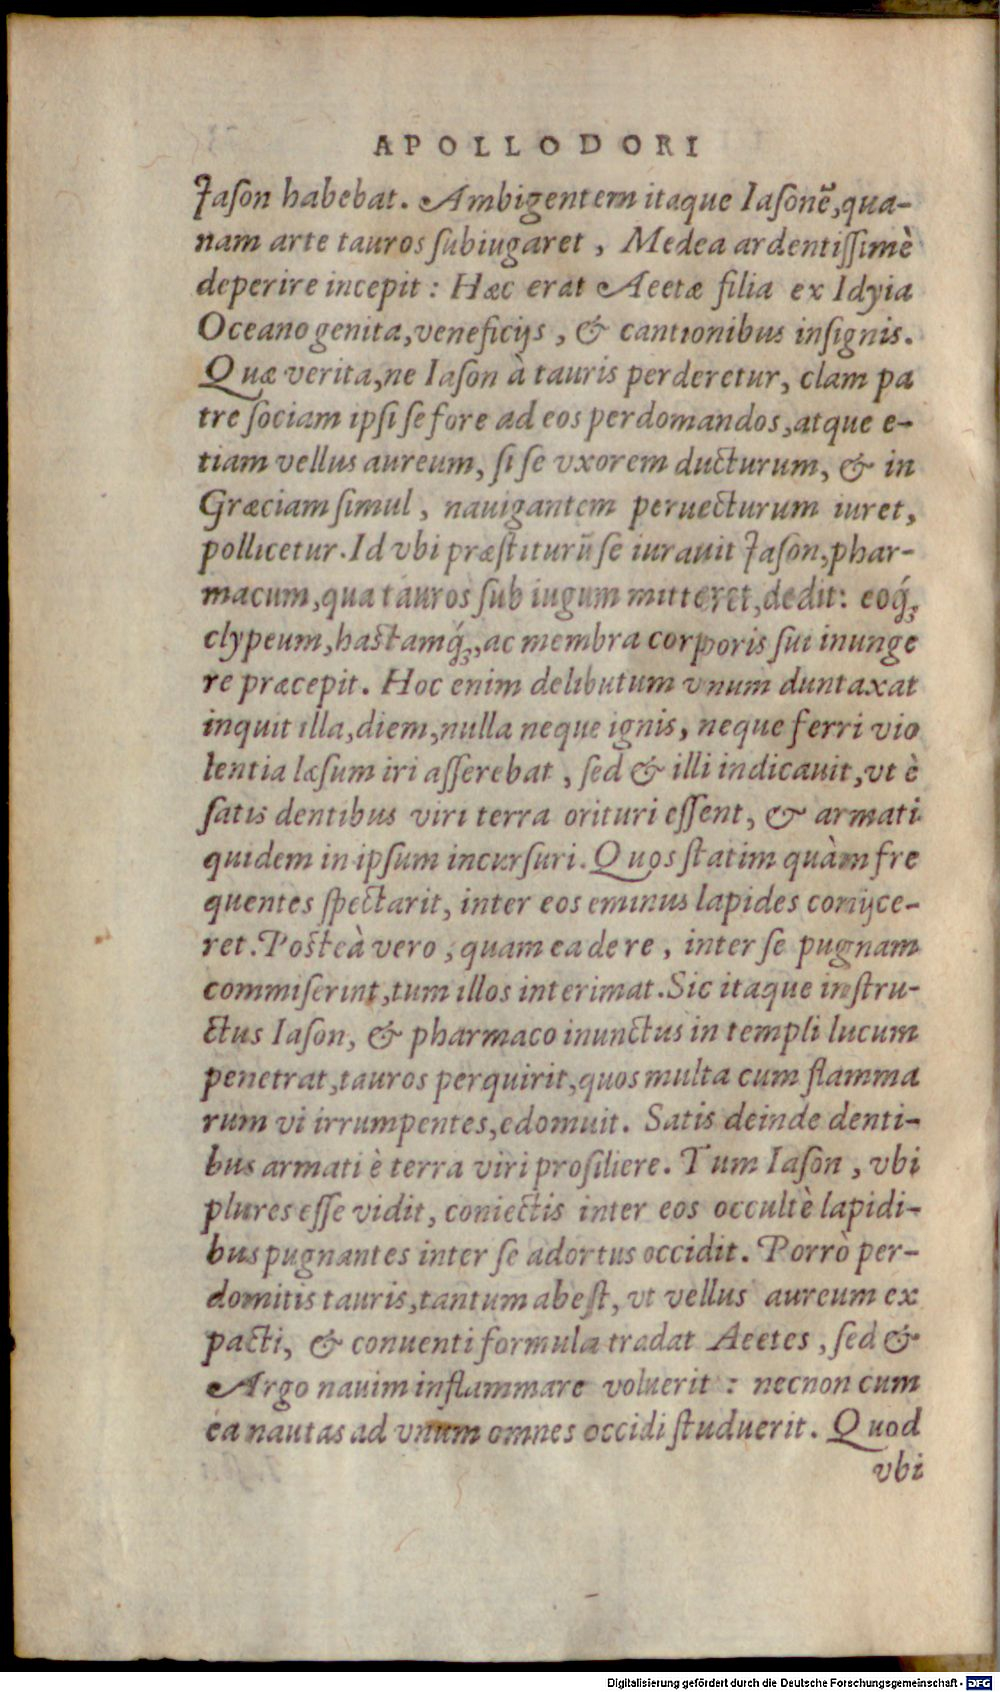 APOLLODORI
Jaſon habebat. Ambigentem itaque Iaſonē, qua-
nam arte tauros ſubiugaret, Medea ardentiſſimè
deperire incepit: Hæc erat Aeetæ filia ex Idyia
Oceano genita, veneficijs, & cantionibus inſignis.
Quæ verita, ne Iaſon à tauris perderetur, clam pa
tre ſociam ipſi ſe fore ad eos perdomandos, atque e-
tiam vellus aureum, ſi ſe vxorem ducturum, & in
Græciam ſimul, nauigantem peruecturum iuret,
pollicetur. Id vbi præſtiturū ſe iurauit Jaſon, phar-
macum, qua tauros ſub iugum mitteret, dedit: eoq́;
clypeum, haſtamq́;, ac membra corporis ſui inunge
re præcepit. Hoc enim delibutum vnum duntaxat
inquit illa, diem, nulla neque ignis, neque ferri vio
lentia læſum iri aſſerebat, ſed & illi indicauit, vt è
ſatis dentibus viri terra orituri eſſent, & armati
quidem in ipſum incurſuri. Quos ſtatim quàm fre
quentes ſpectarit, inter eos eminus lapides conijce-
ret. Poſteà vero, quam ea de re, inter ſe pugnam
commiſerint, tum illos interimat. Sic itaque inſtru-
ctus Iaſon, & pharmaco inunctus in templi lucum
penetrat, tauros perquirit, quos multa cum flamma
rum vi irrumpentes, edomuit. Satis deinde denti-
bus armati è terra viri proſiliere. Tum Iaſon, vbi
plures eſſe vidit, coniectis inter eos occultè lapidi-
bus pugnantes inter ſe adortus occidit. Porrò per-
domitis tauris, tantum abeſt, vt vellus aureum ex
pacti, & conuenti formula tradat Aeetes, ſed &
Argo nauim inflammare voluerit: necnon cum
ea nautas ad vnum omnes occidi ſtuduerit. Quod
vbi
Digitalisierung gefördert durch die Deutsche Forschungsgemeinschaft - DFG